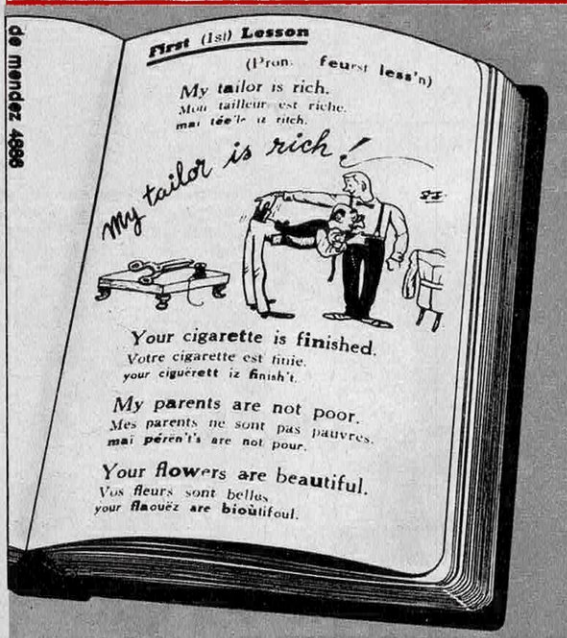 de mendez 4666
First (1st) Lesson
(Pron. feurst less'n)
My tailor is rich.
Mon tailleur est riche.
maï tée'lr iz ritch.
My tailor is rich!
Your cigarette is finished.
Votre cigarette est finie.
your ciguërett iz finish't.
My parents are not poor.
Mes parents ne sont pas pauvres.
maï pérén't's are not pour.
Your flowers are beautiful.
Vos fleurs sont belles
your flaouëz are bioùtifoul.